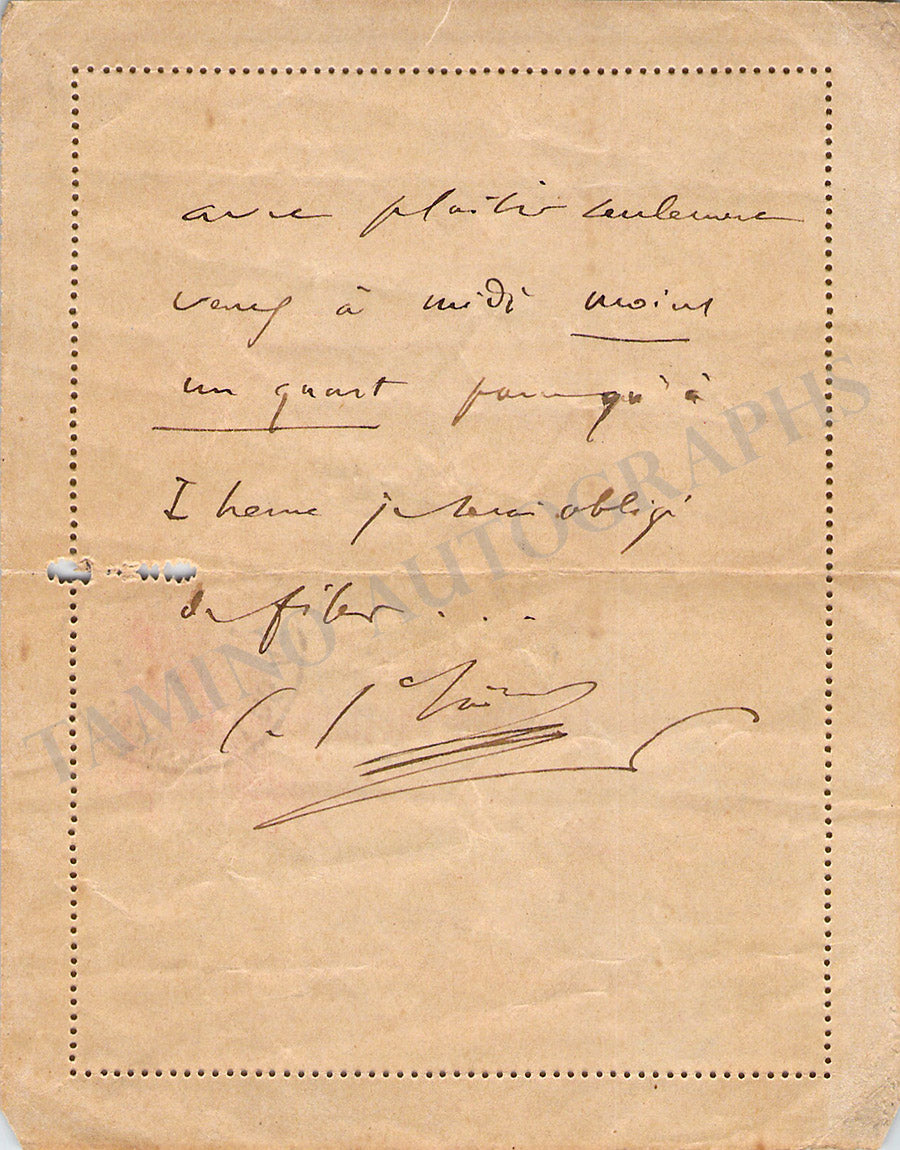 avec plaisir seulement
venez à midi moins
un quart parcequ'à
1 heure je serai obligé
de filer . . .
C. St Saëns
TAMINO AUTOGRAPHS